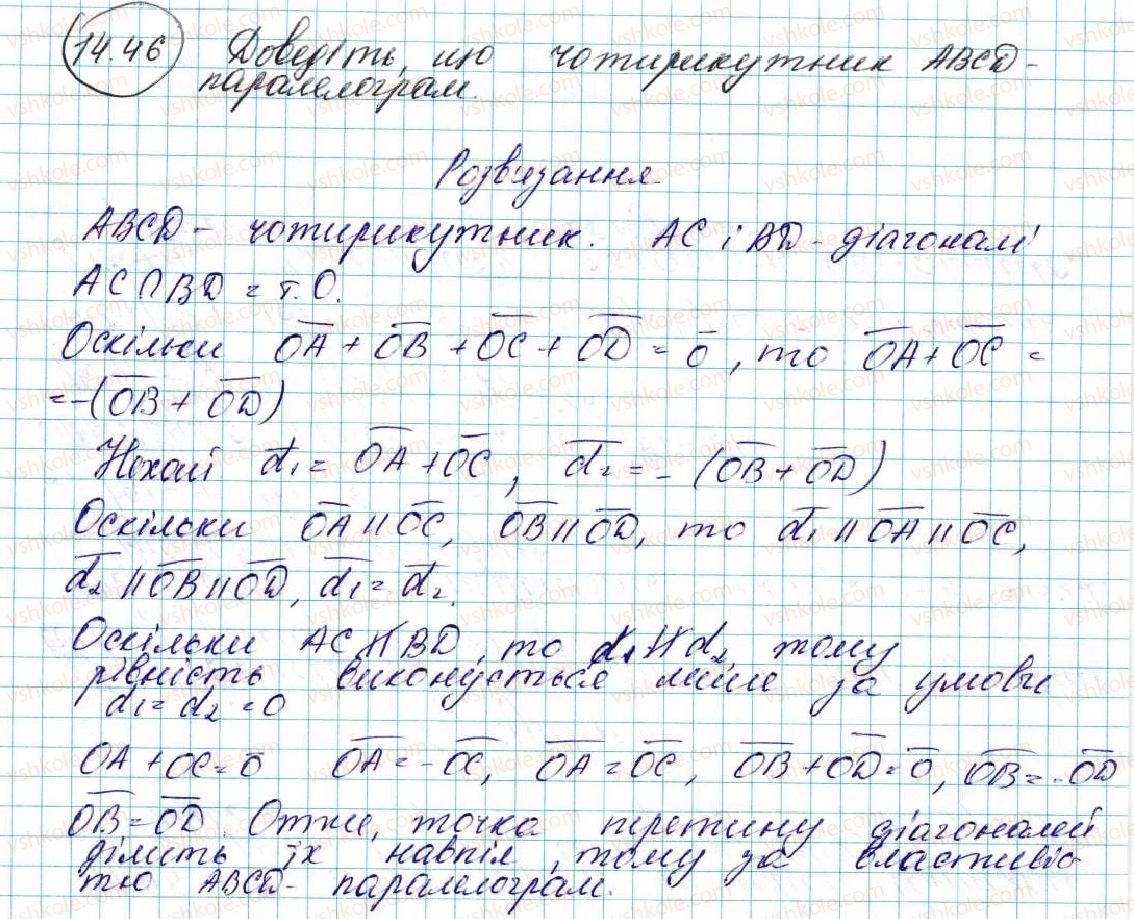 14.46 Доведіть, що чотирикутник ABCD -
паралелограм.
Розв'язання
ABCD - чотирикутник. AC і BD - діагоналі
AC∩BD = т. O.
Оскільки O͞A + O͞B + O͞C + O͞D = 0̄, то O͞A + O͞C =
= -(O͞B + O͞D)
Нехай d̄₁ = O͞A + O͞C, d̄₂ = - (O͞B + O͞D)
Оскільки O͞A || O͞C, O͞B || O͞D, то d̄₁ || O͞A || O͞C,
d̄₂ || O͞B || O͞D, d̄₁ = d̄₂.
Оскільки AC ∦ BD, то d₁ ∦ d₂, тому
рівність виконується лише за умови
d̄₁ = d̄₂ = 0
OA + OC = 0̄ O͞A = -O͞C, O͞A = O͞C, O͞B + O͞D = 0̄, O͞B = -O͞D
O͞B = O͞D. Отже, точка перетину діагоналей
ділить їх навпіл, тому за властивіс
тю ABCD - паралелограм.